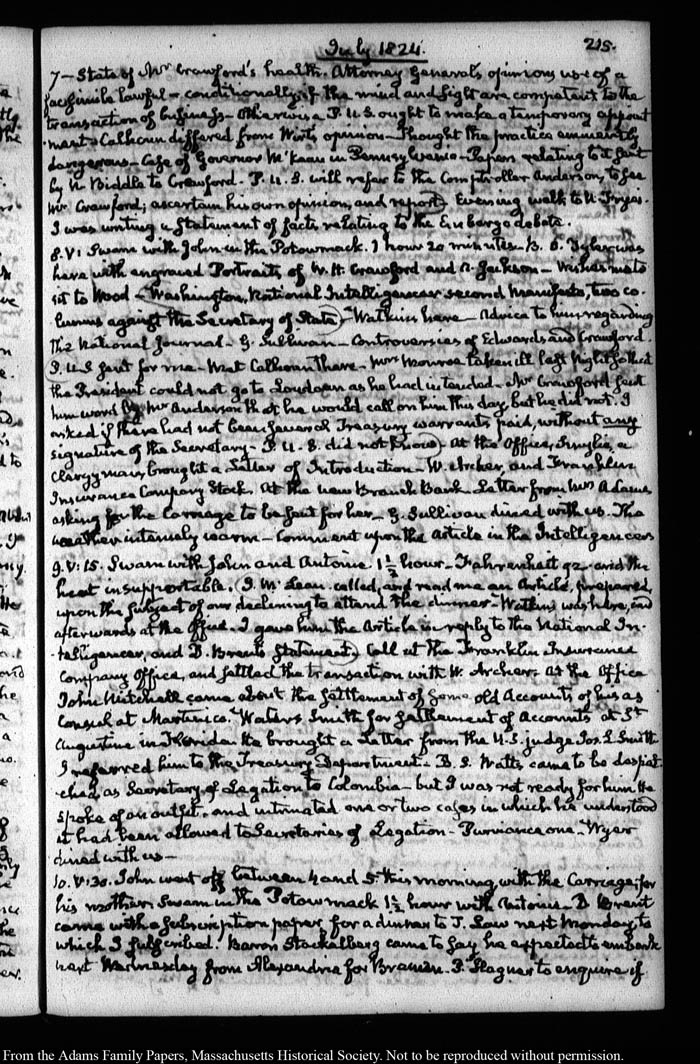 July 1824.
215.
7 – State of Mr Crawford's health. Attorney General's opinion, use of a
facsimile lawful – conditionally, if the mind and sight are competent to the
transaction of business – Otherwise P. U.S. ought to make a temporary appoint
ment – Calhoun differed from Wirt's opinion – Thought the practice eminently
dangerous – Case of Governor McKean in Pennsylvania – Papers relating to it sent
by N. Biddle to Crawford. P. U. S. will refer to the Comptroller Anderson, to see
Mr Crawford; ascertain his own opinion, and report) Evening walk to N. Frye's.
I was writing a Statement of facts relating to the Embargo debate.
8. V: Swam with John in the Potowmack. 1 hour 20 minutes – B. O. Tyler was
here with engraved Portraits of W. H. Crawford and A. Jackson – Wishes me to
sit to Wood – Washington, National Intelligencer second Manifesto, two co-
lumns against the Secretary of State) – Watkins here – Advice to him regarding
the National Journal – G. Sullivan – Controversies of Edwards and Crawford.
P. U.S sent for me – Met Calhoun there – Mrs Monroe taken ill last Night so that
the President could not go to Loudoun as he had intended – Mr Crawford sent
him word by Mr Anderson that he would call on him this day, but he did not. I
asked if there had not been several Treasury warrants paid, without any
signature of the Secretary – P. U. S. did not know) – At the Office, Inglis, a
Clergyman, brought a Letter of Introduction – W. Archer, and Franklin
Insurance Company Stock. At the new Branch Bank – Letter from Mrs Adams
asking for the Carriage to be sent for her – G. Sullivan dined with us. The
weather intensely warm – Comment upon the Article in the Intelligencer
9. V: 15. Swam with John and Antoine 1½ hour – Fahrenheit 92 and the
heat insupportable. (J. McLean called, and read me an Article, prepared,
upon the subject of our declining to attend the dinner – Watkins was here, and
afterwards at the Office – I gave him the Article in reply to the National In-
telligencer, and D. Brent's Statement) Call at the Franklin Insurance
Company Office, and settled the transaction with W. Archer. At the Office
John Mitchell came about the settlement of some old Accounts of his as
Consul at Martinico. Waters Smith for settlement of Accounts at St
Augustine in Florida. He brought a Letter from the U.S. judge Jos. L Smith
I referred him to the Treasury Department – B. S. Watts came to be despat-
ched as Secretary of Legation to Colombia – but I was not ready for him. He
spoke of an outfit, and intimated one or two cases in which he understood
it had been allowed to Secretaries of Legation – Purviance one – Wyer
dined with us –
10. V: 30. John went off between 4 and 5. this morning with the Carriage for
his mother. Swam in the Potowmack 1½ hour with Antoine – D Brent
came with a subscription paper, for a dinner to T. Law next Monday, to
which I subscribed. Baron Stackelberg came to say he expects to embark
next Wednesday from Alexandria for Bremen. P. Slagner to enquire if
From the Adams Family Papers, Massachusetts Historical Society. Not to be reproduced without permission.